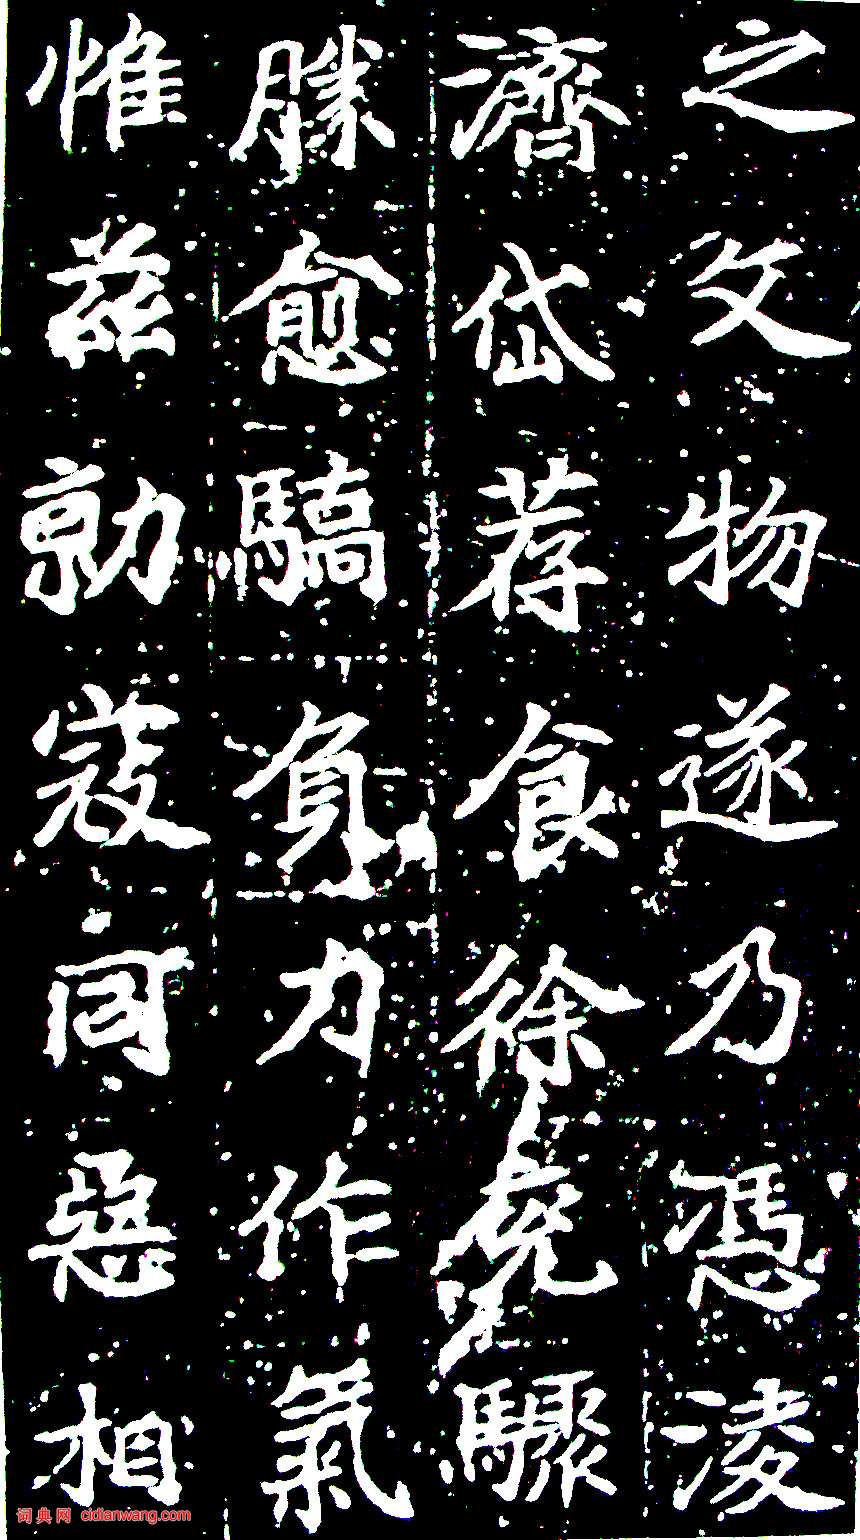 之文物遂乃憑淩
濟岱荐食徐兗驟
勝愈驕負力作氣
惟茲勍寇同惡相
词典网 cidianwang.com